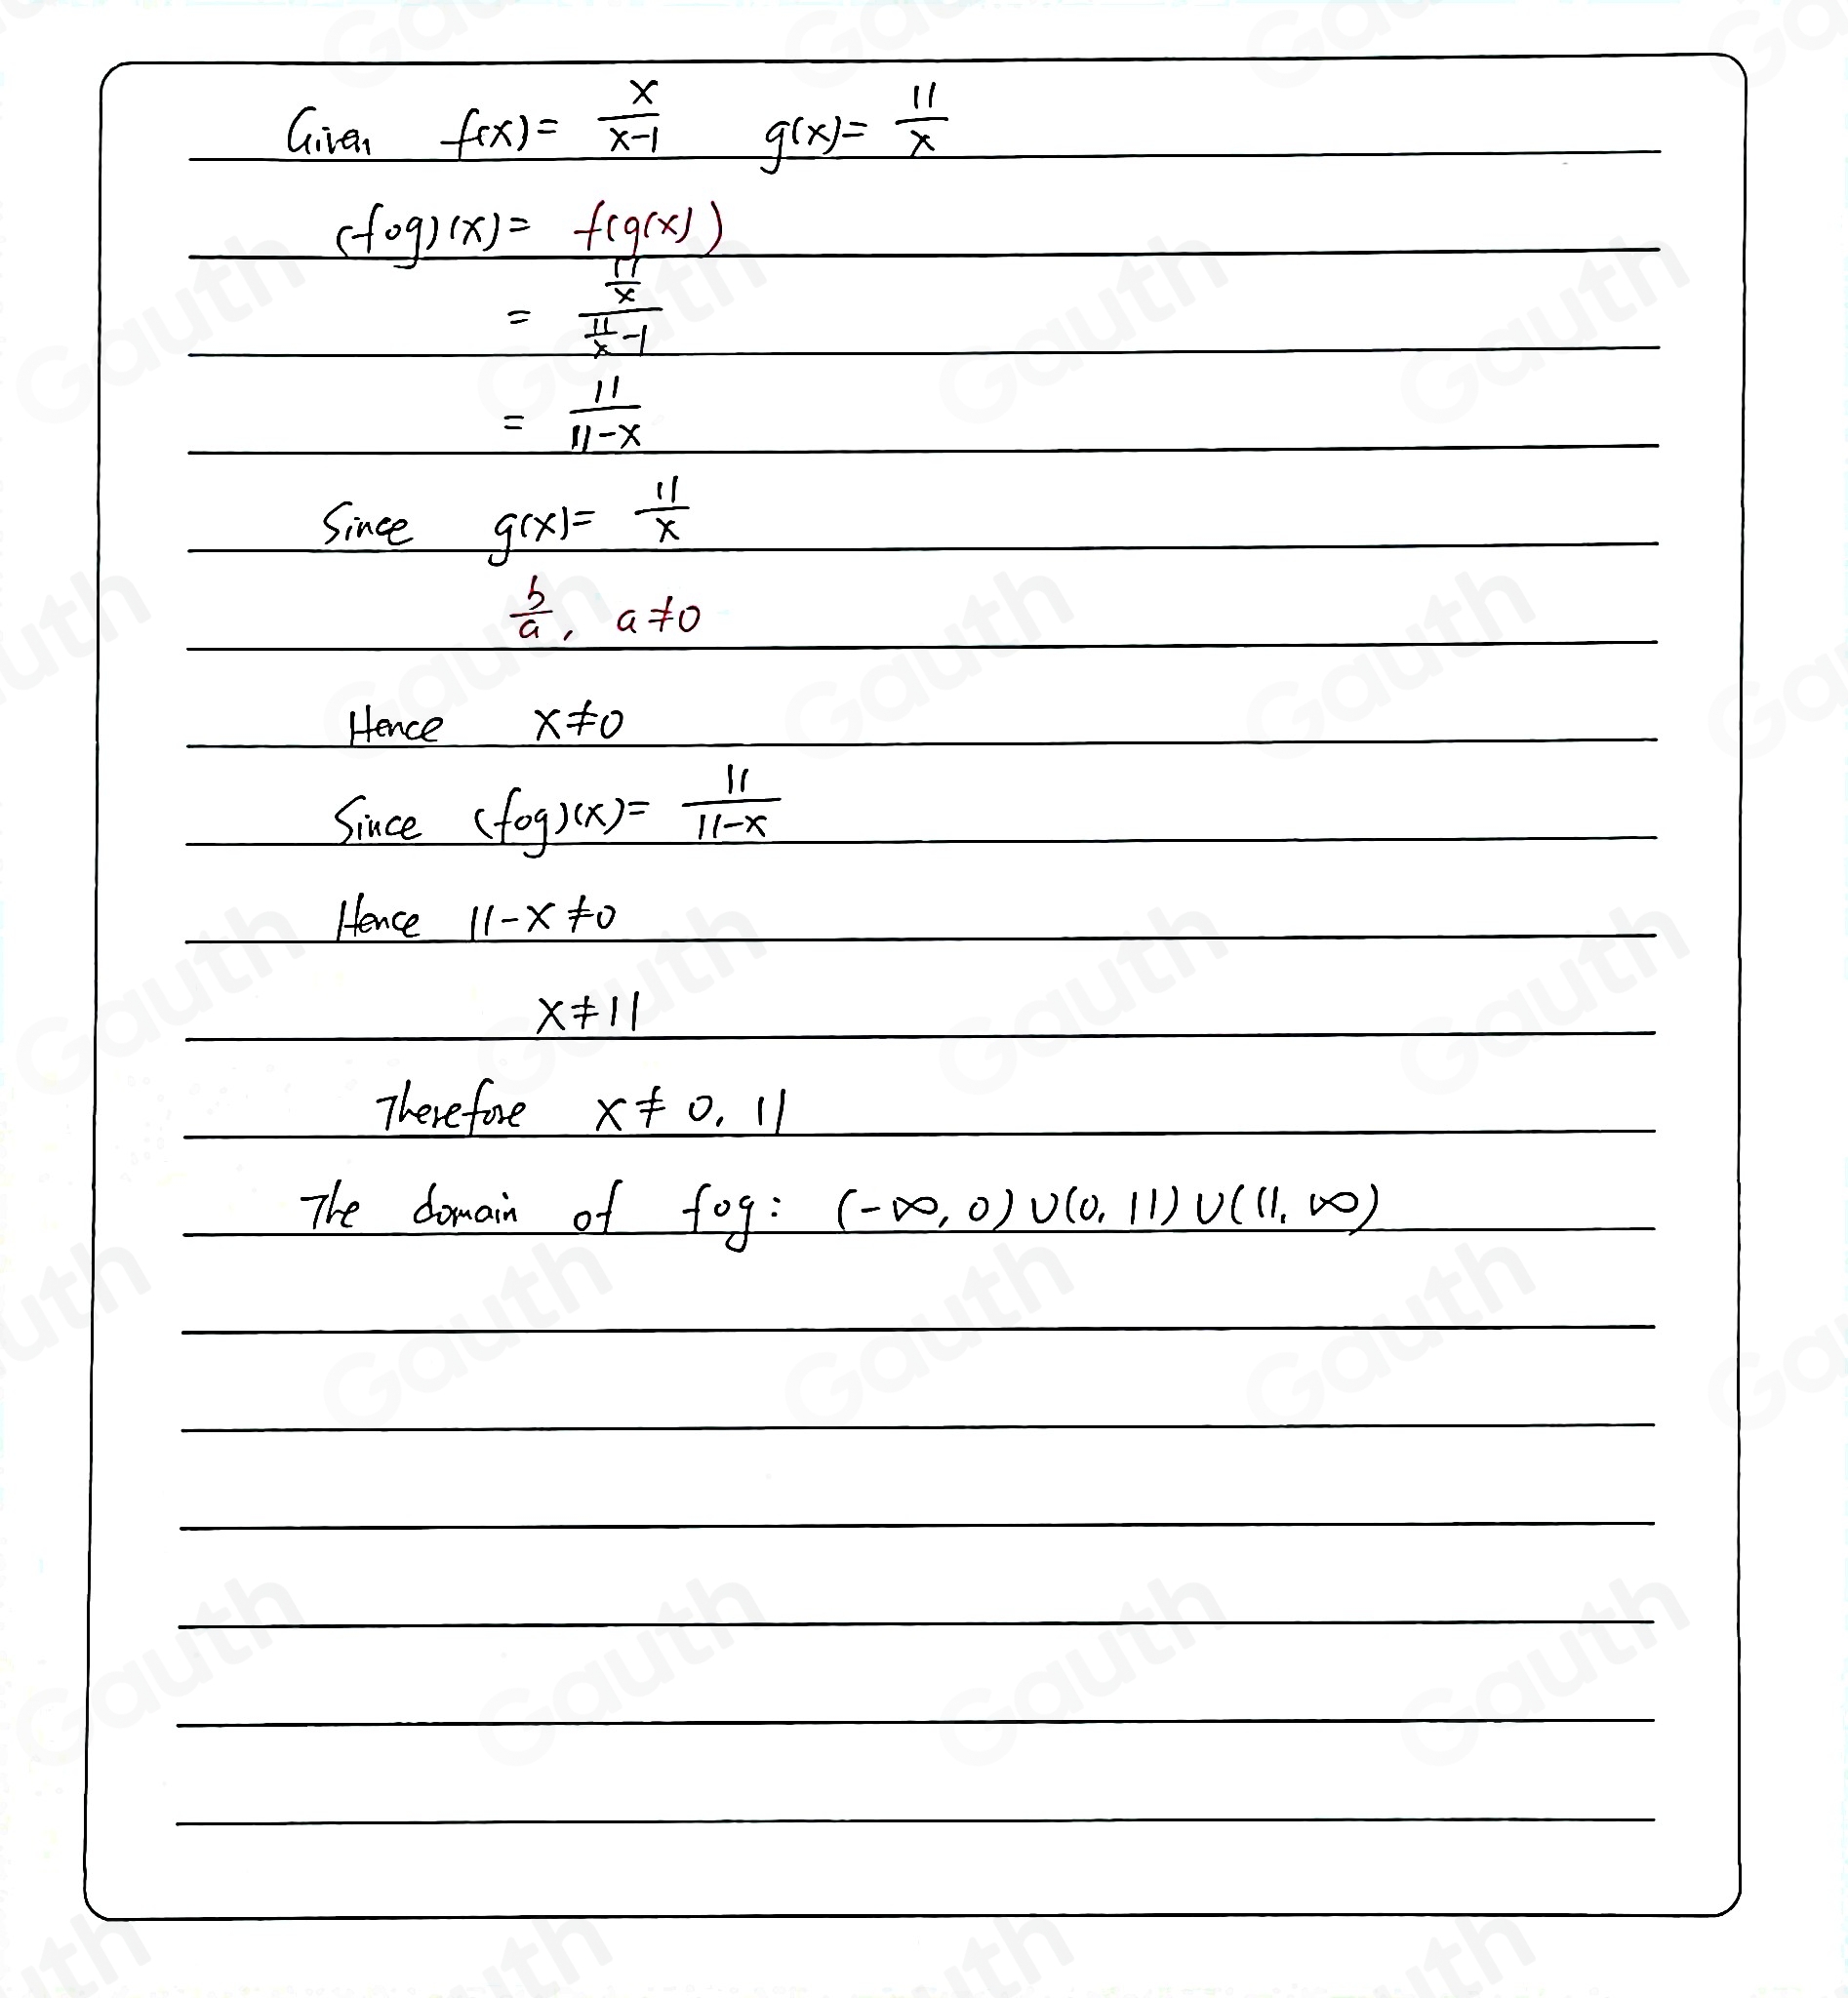 Given f(x) = x/(x-1) g(x) = 11/x
(fog)(x) = f(g(x))
= (11/x)/(11/x - 1)
= 11/(11-x)
Since g(x) = 11/x
b/a, a≠0
Hence x≠0
Since (fog)(x) = 11/(11-x)
Hence 11-x≠0
x≠11
Therefore x≠0, 11
The domain of fog: (-∞, 0)∪(0, 11)∪(11, ∞)
Gauth